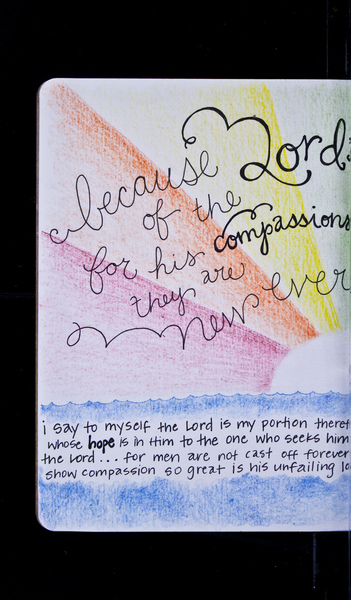 because
of the
Lord's
for his
compassions
they are
new ever
i say to myself the Lord is my portion theref
whose hope is in Him to the one who seeks him
the Lord... for men are not cast off forever
show compassion so great is his unfailing lo